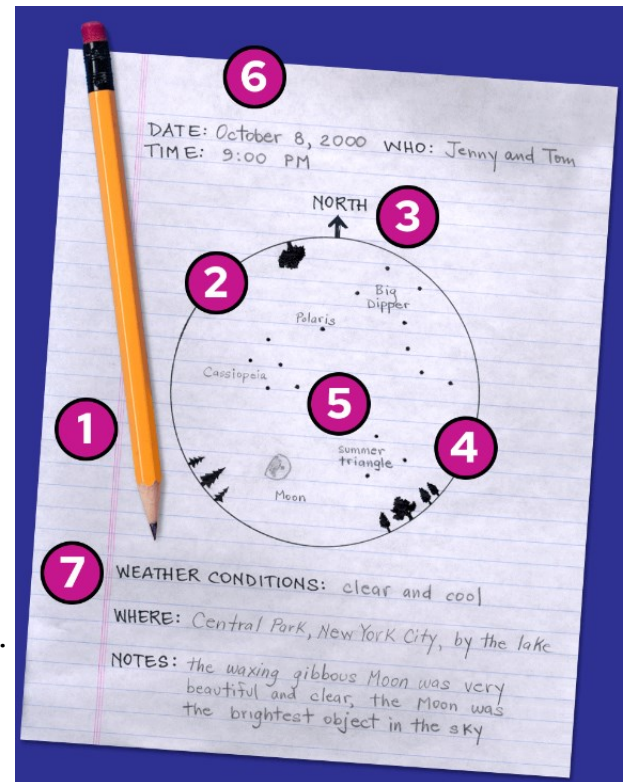 6
DATE: October 8, 2000 WHO: Jenny and Tom
TIME: 9:00 PM
NORTH
3
2
Big
Dipper
Polaris
Cassiopeia
5
1
4
summer
triangle
Moon
7
WEATHER CONDITIONS: clear and cool
WHERE: Central Park, New York City, by the lake
NOTES: the waxing gibbous Moon was very
beautiful and clear, the Moon was
the brightest object in the sky